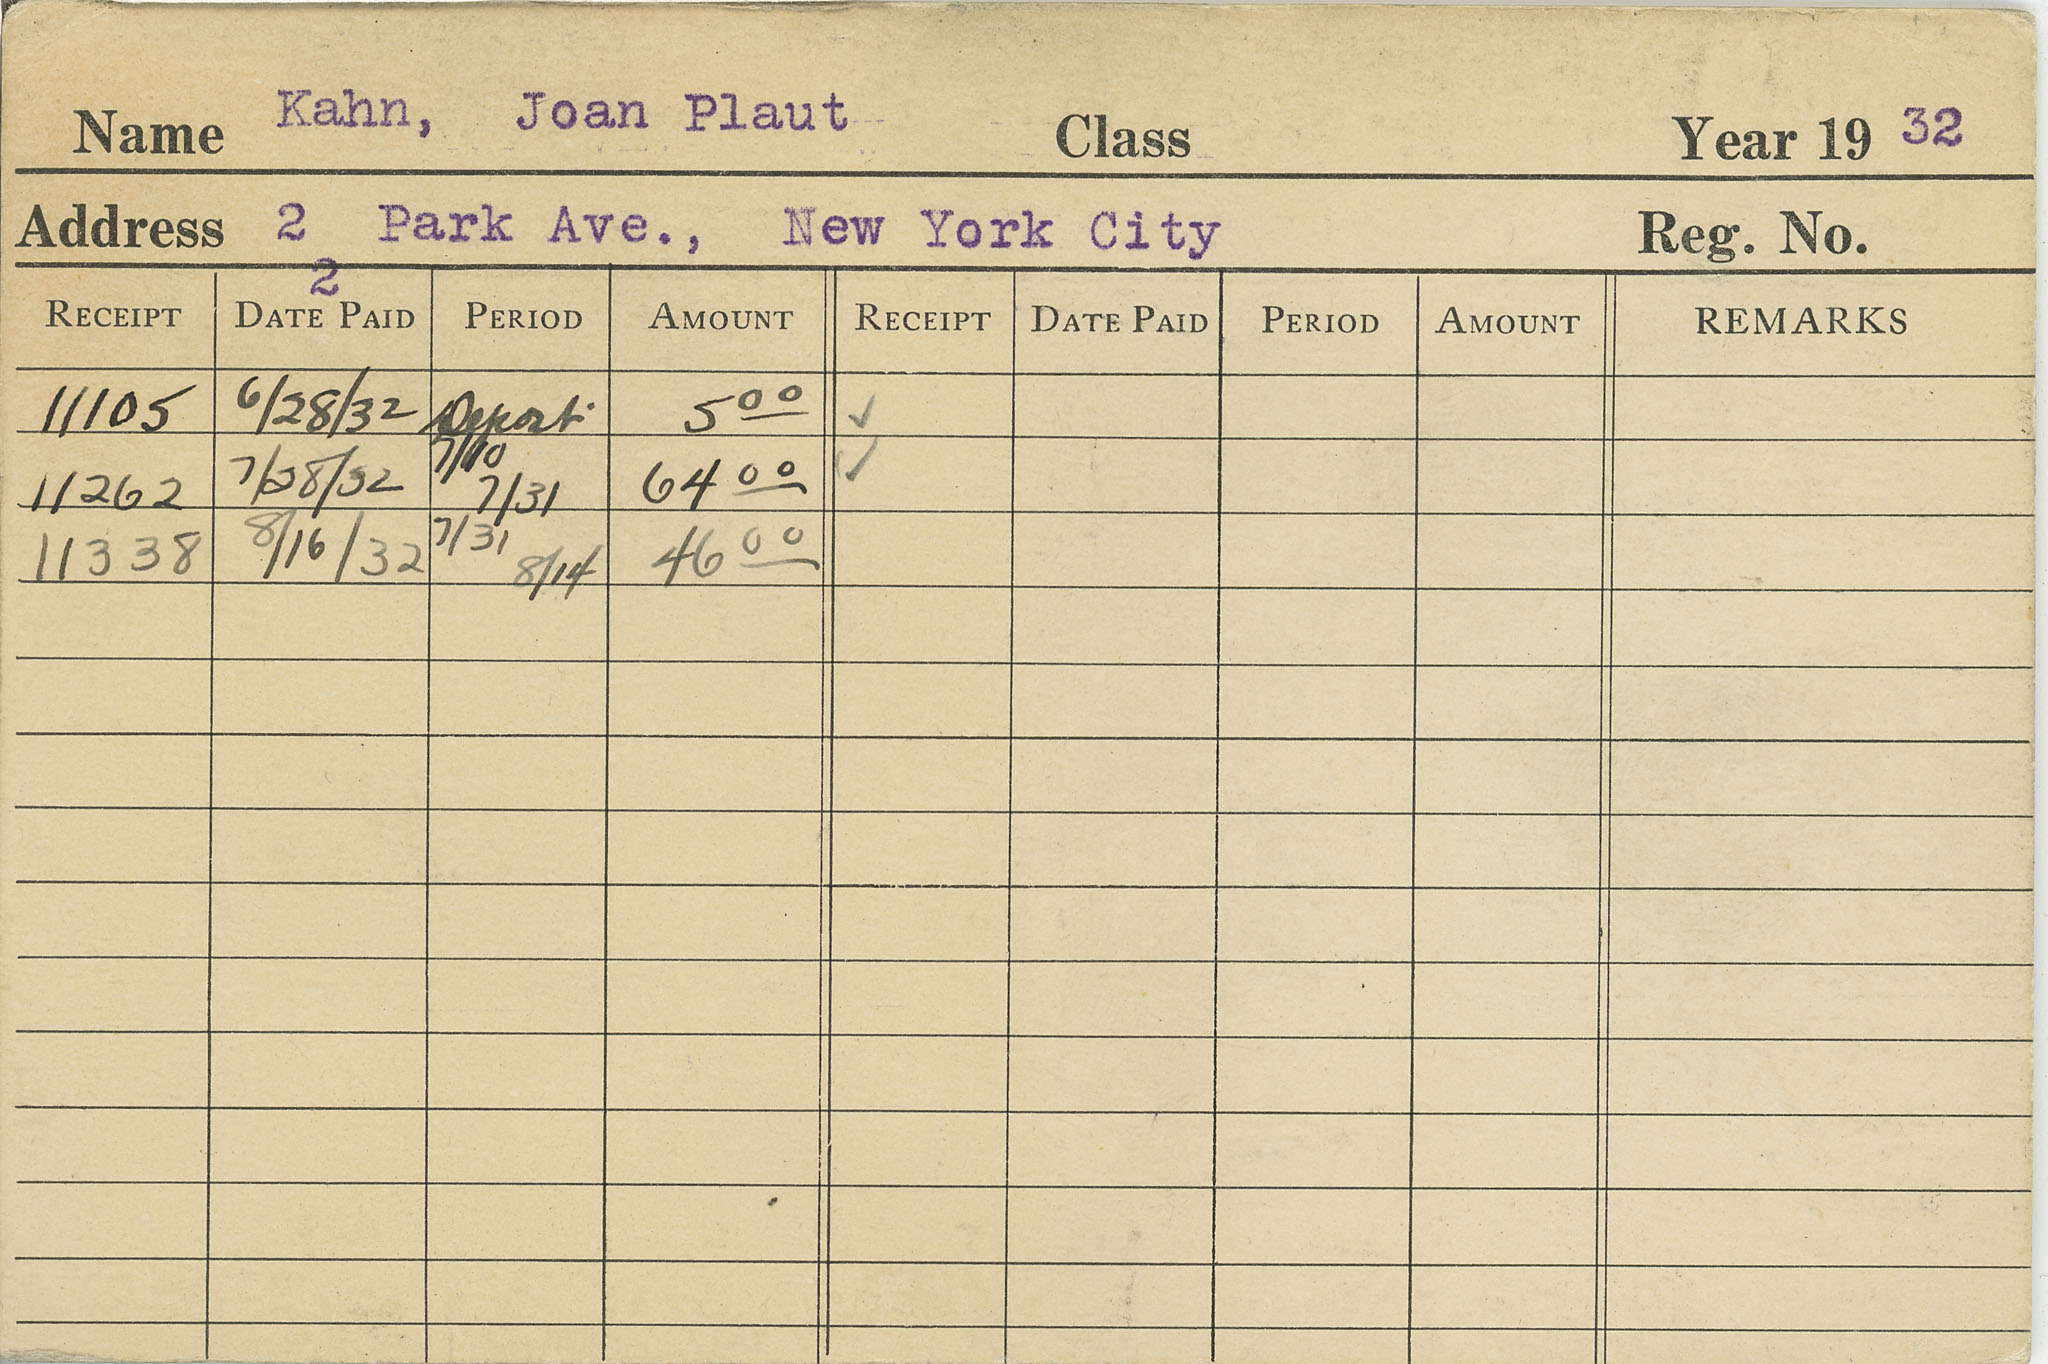 Name Kahn, Joan Plaut Class Year 19 32
Address 2 Park Ave., New York City Reg. No.
2
RECEIPT DATE PAID PERIOD AMOUNT RECEIPT DATE PAID PERIOD AMOUNT REMARKS
11105 6/28/32 Deposit 5 00 ✓
11262 7/28/32 7/10 7/31 64 00 ✓
11338 8/16/32 7/31 8/14 46 00